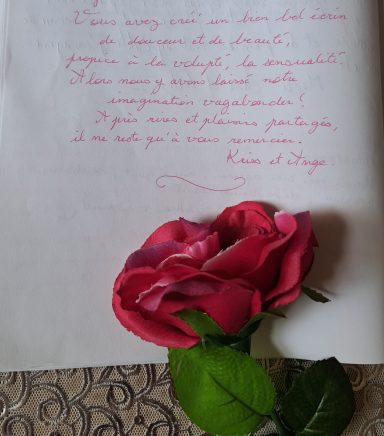 Vous avez créé un bien bel écrin
de douceur et de beauté,
propice à la volupté, la sensualité.
Alors nous y avons laissé notre
imagination vagabonder !
Après rires et plaisirs partagés,
il ne reste qu'à vous remercier.
Kriss et Ange